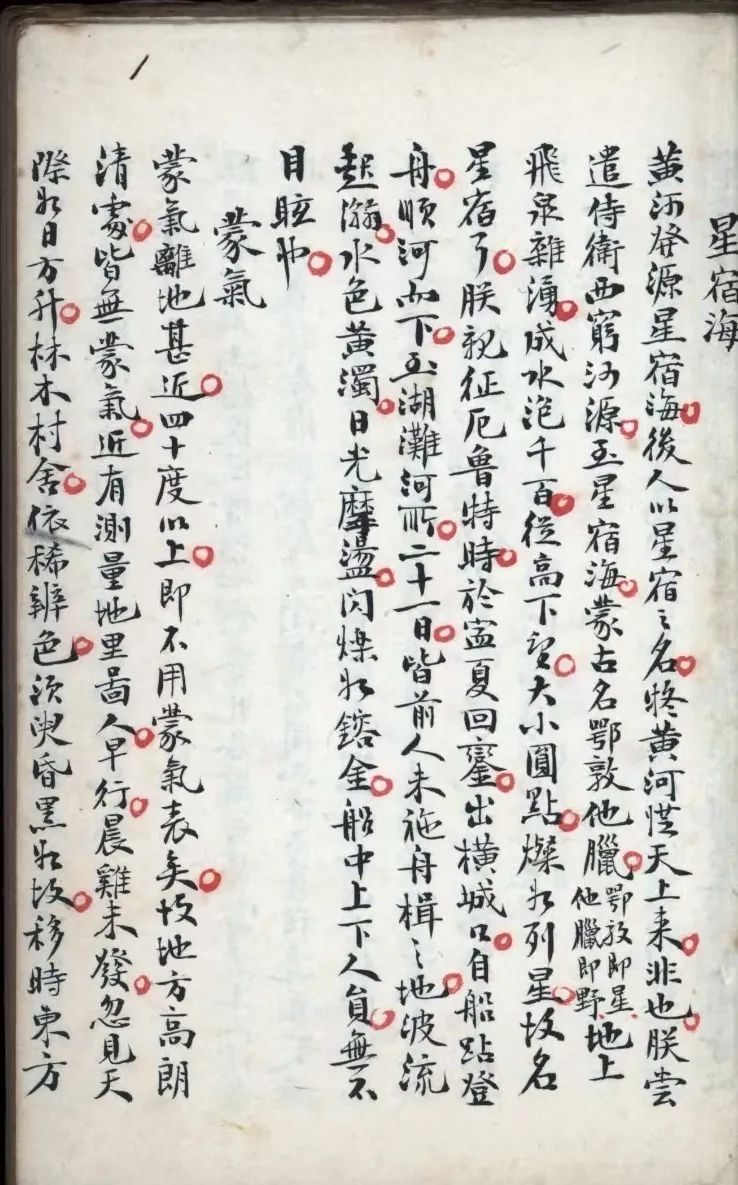 星宿海
黄河發源星宿海後人以星宿之名疑黄河從天上来非也朕尝
遣侍衛西窮河源至星宿海蒙古名鄂敦他臘鄂敦即星他臘即野地上
飛泉雜湧成水泡千百從高下望大小圓點燦如列星故名
星宿了朕親征厄魯特時於寧夏回鑾出橫城口自船跕登
舟順河而下至湖灘河所二十一日皆前人未施舟楫之地波流
起滃水色黄濁日光摩盪閃爍如鎔金船中上下人員無不
目眩也
蒙氣
蒙氣離地甚近四十度以上即不用蒙氣表矣故地方高朗
清處皆無蒙氣近有測量地里啚人早行晨雞未發忽見天
際如日方升林木村舍依稀辨色須臾昏黑如故移時東方